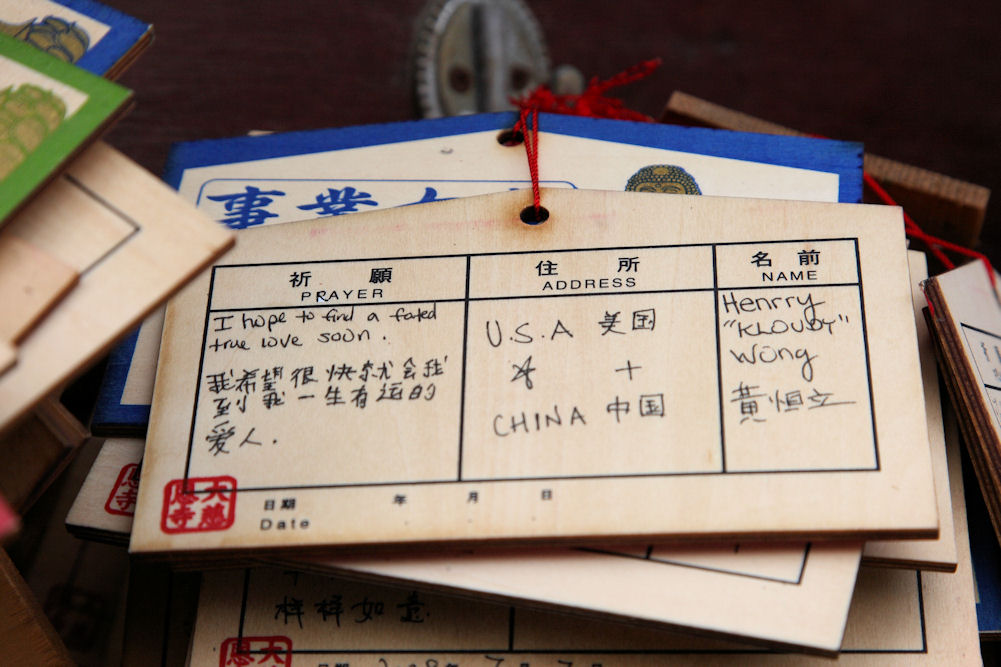 事業
祈願
PRAYER
住所
ADDRESS
名前
NAME
I hope to find a fated
true love soon.
我希望很快就会找
到我一生有运的
爱人.
U.S.A 美国
+
CHINA 中国
Henrry
"KLOUDY"
Wong
黄恒立
大慈恩寺
日期 年 月 日
Date
样样如意.